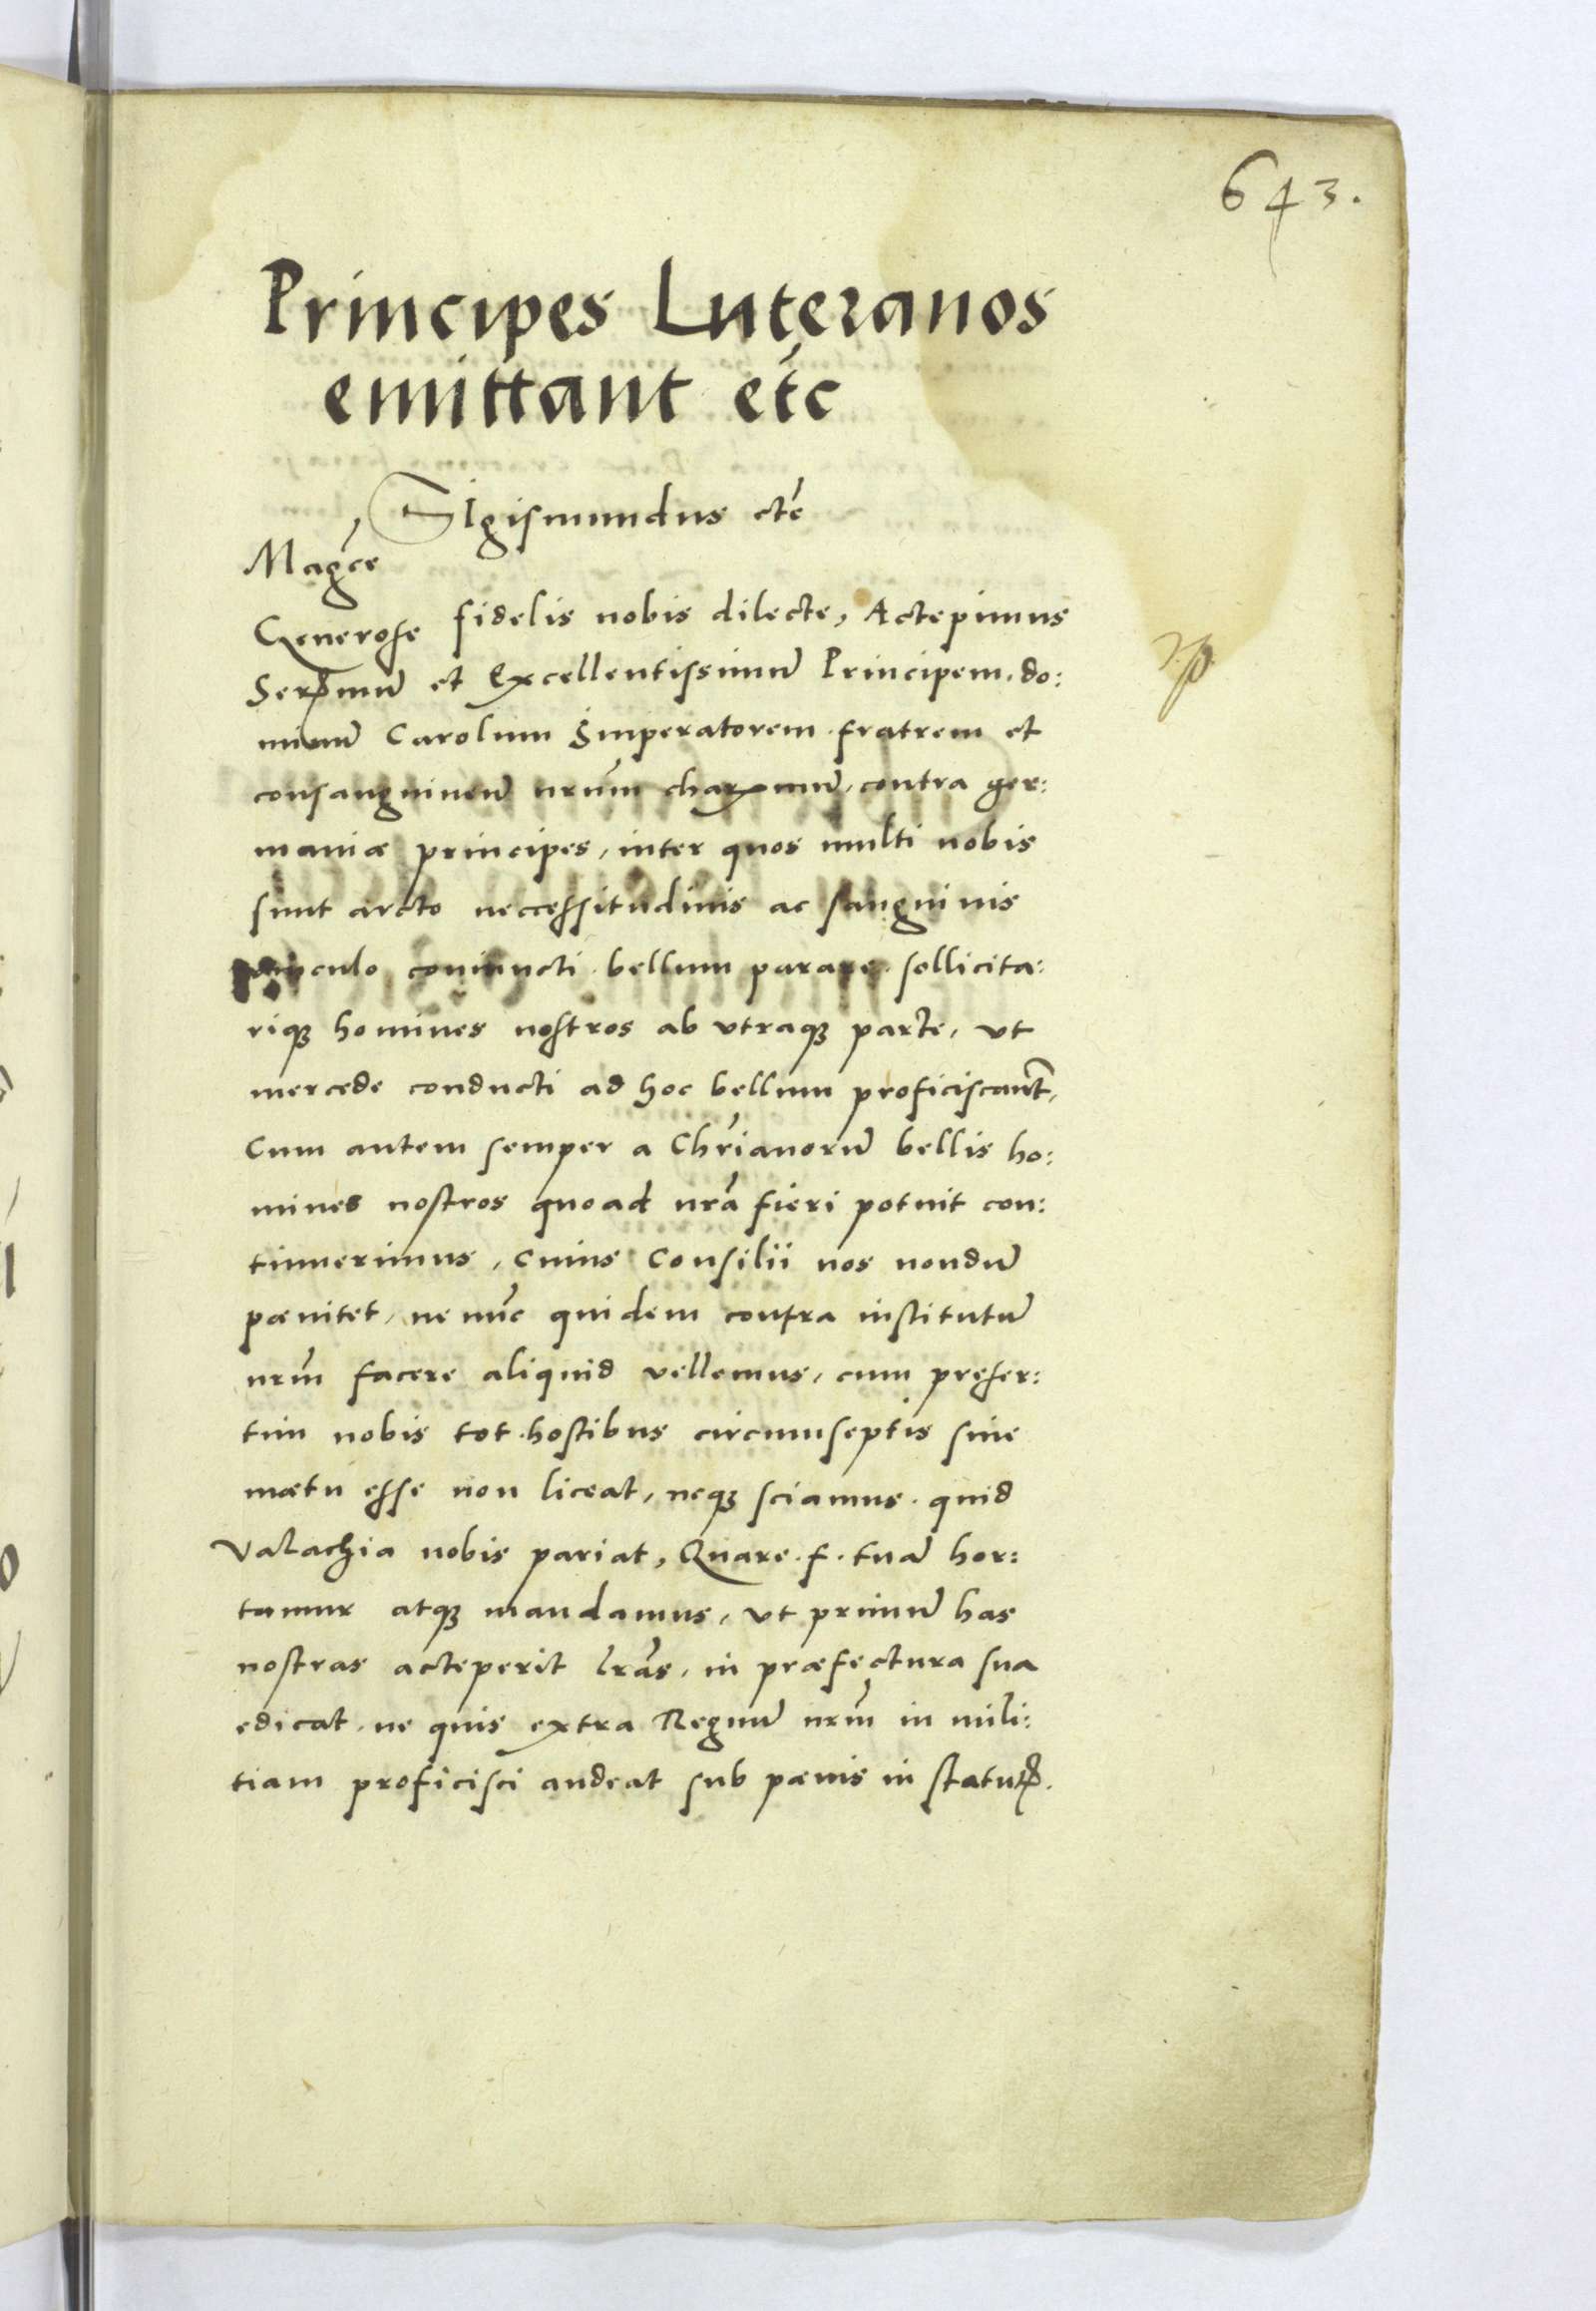 643.
Principes Luteranos
emittant etc̃
SIgismundus etc̃
Magc̃e
Generose fidelis nobis dilecte, Accepimus
Serᵐᵘᵐ et Excellentissimũ Principem. do:
minũ Carolum Imperatorem. fratrem et
consanguineũ nrũm charᵐᵘᵐ, contra ger:
maniæ principes, inter quos multi nobis
sunt arcto neccessitudinis ac sanguinis
vinculo coniuncti. bellum parare. sollicita:
riqꝫ homines nostros ab vtraqꝫ parte, vt
mercede conducti ad hoc bellum proficiscant̃,
Cum autem semper a Chr̃ianorũ bellis ho:
mines nostros quoad nrã fieri potuit con:
tinuerimus, cuius Consilii nos nondũ
pænitet, ne nũc quidem contra institutũ
nrm̃ facere aliquid vellemus, cum preser:
tim nobis tot. hostibus circumseptis sine
mætu esse non liceat, neqꝫ sciamus. quid
Valachia nobis pariat, Quare. f. tuã hor:
tamur atqꝫ mandamus, vt primũ has
nostras acceperit lrãs, in præfectura sua
edicat. ne quis extra Regnũ nrm̃ in mili:
tiam proficisci audeat sub pænis in statutꝭ.